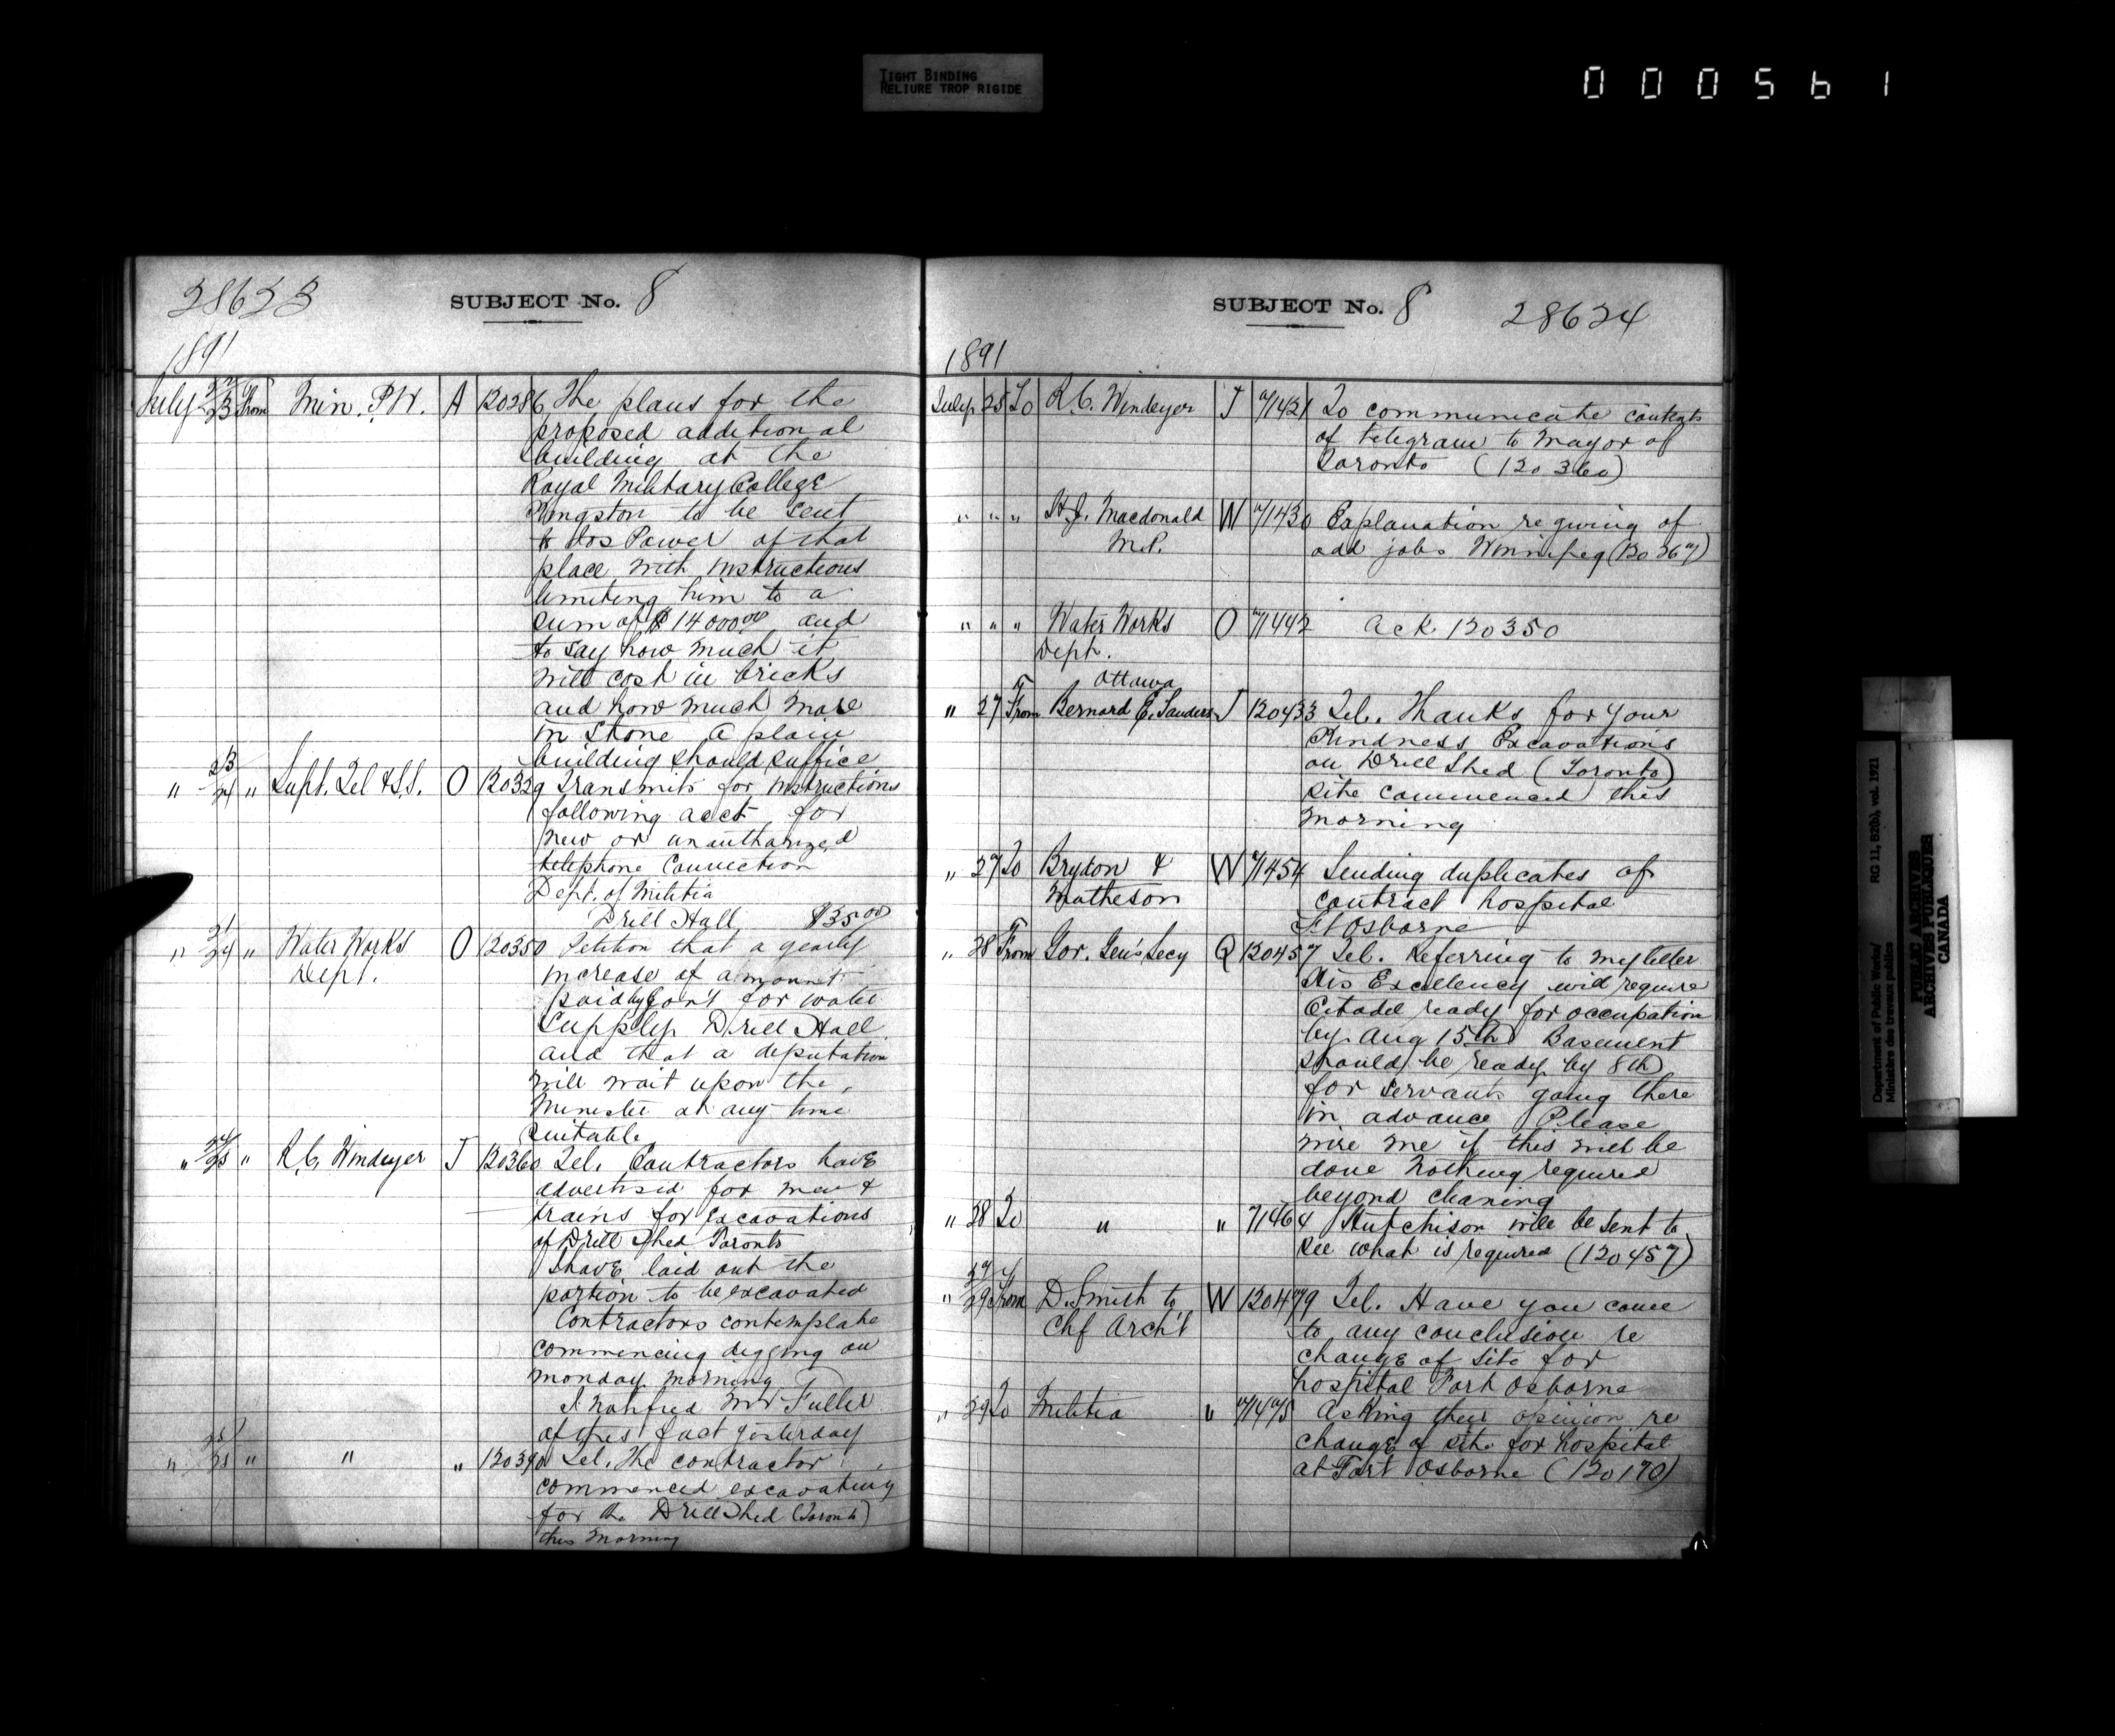 TIGHT BINDING
RELIURE TROP RIGIDE
000561
28623 SUBJECT No. 8
1891
July 22/23 From Min. P.W. A 120286 The plans for the
proposed additional
building at the
Royal Military College
Kingston to be sent
to Jos Power of that
place with instructions
limiting him to a
sum of $14000.00 and
to say how much it
will cost in bricks
and how much more
in Stone a plain
building should suffice
" 23/24 " Supt. Tel & S.S. O 120329 Transmits for instructions
following acct for
new or unauthorized
telephone Connection
Dept. of Militia
Drill Hall $35.00
" 21/24 " Water Works O 120350 Petition that a yearly
Dept. increase of amount
paid by Gov't for water
Supply Drill Hall
and that a deputation
will wait upon the
Minister at any time
Suitable
" 24/25 " R.C. Windeyer J 120360 Tel. Contractors have
advertised for men &
trains for excavations
of Drill Shed Toronto
I have laid out the
portion to be excavated
Contractors contemplate
commencing digging on
monday morning
I notified Mr Fuller
of this fact yesterday
" 25/25 " " " 120390 Tel. The contractor
commenced excavating
for the Drill Shed (Toronto)
this Morning
SUBJECT No. 8 28624
1891
July 25 To R.C. Windeyer J 71421 To communicate contents
of telegram to Mayor of
Toronto (120360)
" " " H.J. Macdonald W 71430 Explanation re giving of
M.P. odd jobs Winnipeg (120367)
" " " Water Works O 71442 Ack 120350
Dept.
Ottawa
" 27 From Bernard E. Sanders J 120433 Tel. Thanks for your
Kindness Excavations
on Drill Shed (Toronto)
site commenced this
morning
" 27 To Brydon & W 71454 Sending duplicates of
Matheson contract hospital
Ft Osborne
" 28 From Gov. Gen's Secy Q 120457 Tel. Referring to my letter
His Excellency will require
Citadel ready for occupation
by Aug 15th Basement
should be ready by 8th
for servants going there
in advance Please
wire me if this will be
done Nothing required
beyond cleaning
" 28 To " " 71464 Hutchison will be sent to
see what is required (120457)
" 27/29 From D. Smith to W 120479 Tel. Have you come
Chf Arch't to any conclusion re
change of site for
hospital Fort Osborne
" 29 To Militia " 71475 Asking their opinion re
change of site for hospital
at Fort Osborne (120170)
Department of Public Works/ RG 11, B2(b), vol. 1921
Ministère des travaux publics
PUBLIC ARCHIVES
ARCHIVES PUBLIQUES
CANADA